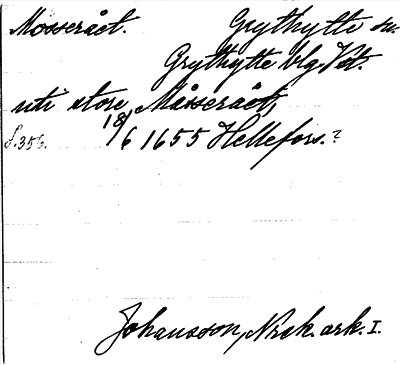 Mosserået. Grythytte sn.
Grythytte blg Vst.
uti store Måsserået,
f. 356. 18/6 1655 Hellefors.?
Johansson, Nrck. ark. I.